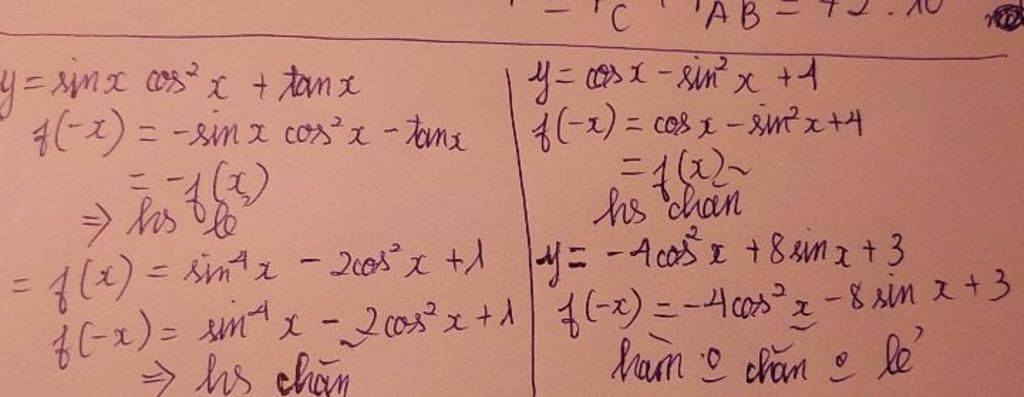 C AB = 72.10
y = sinx cos² x + tanx
f(-x) = -sin x cos² x - tanx
= -f(x)
⇒ hs lẻ
= f(x) = sin⁴ x - 2cos² x + 1
f(-x) = sin⁴ x - 2cos² x + 1
⇒ hs chẵn
y = cos x - sin² x + 4
f(-x) = cos x - sin² x + 4
= f(x)
hs chẵn
y = -4cos² x + 8 sin x + 3
f(-x) = -4cos² x - 8 sin x + 3
hàm o chẵn o lẻ